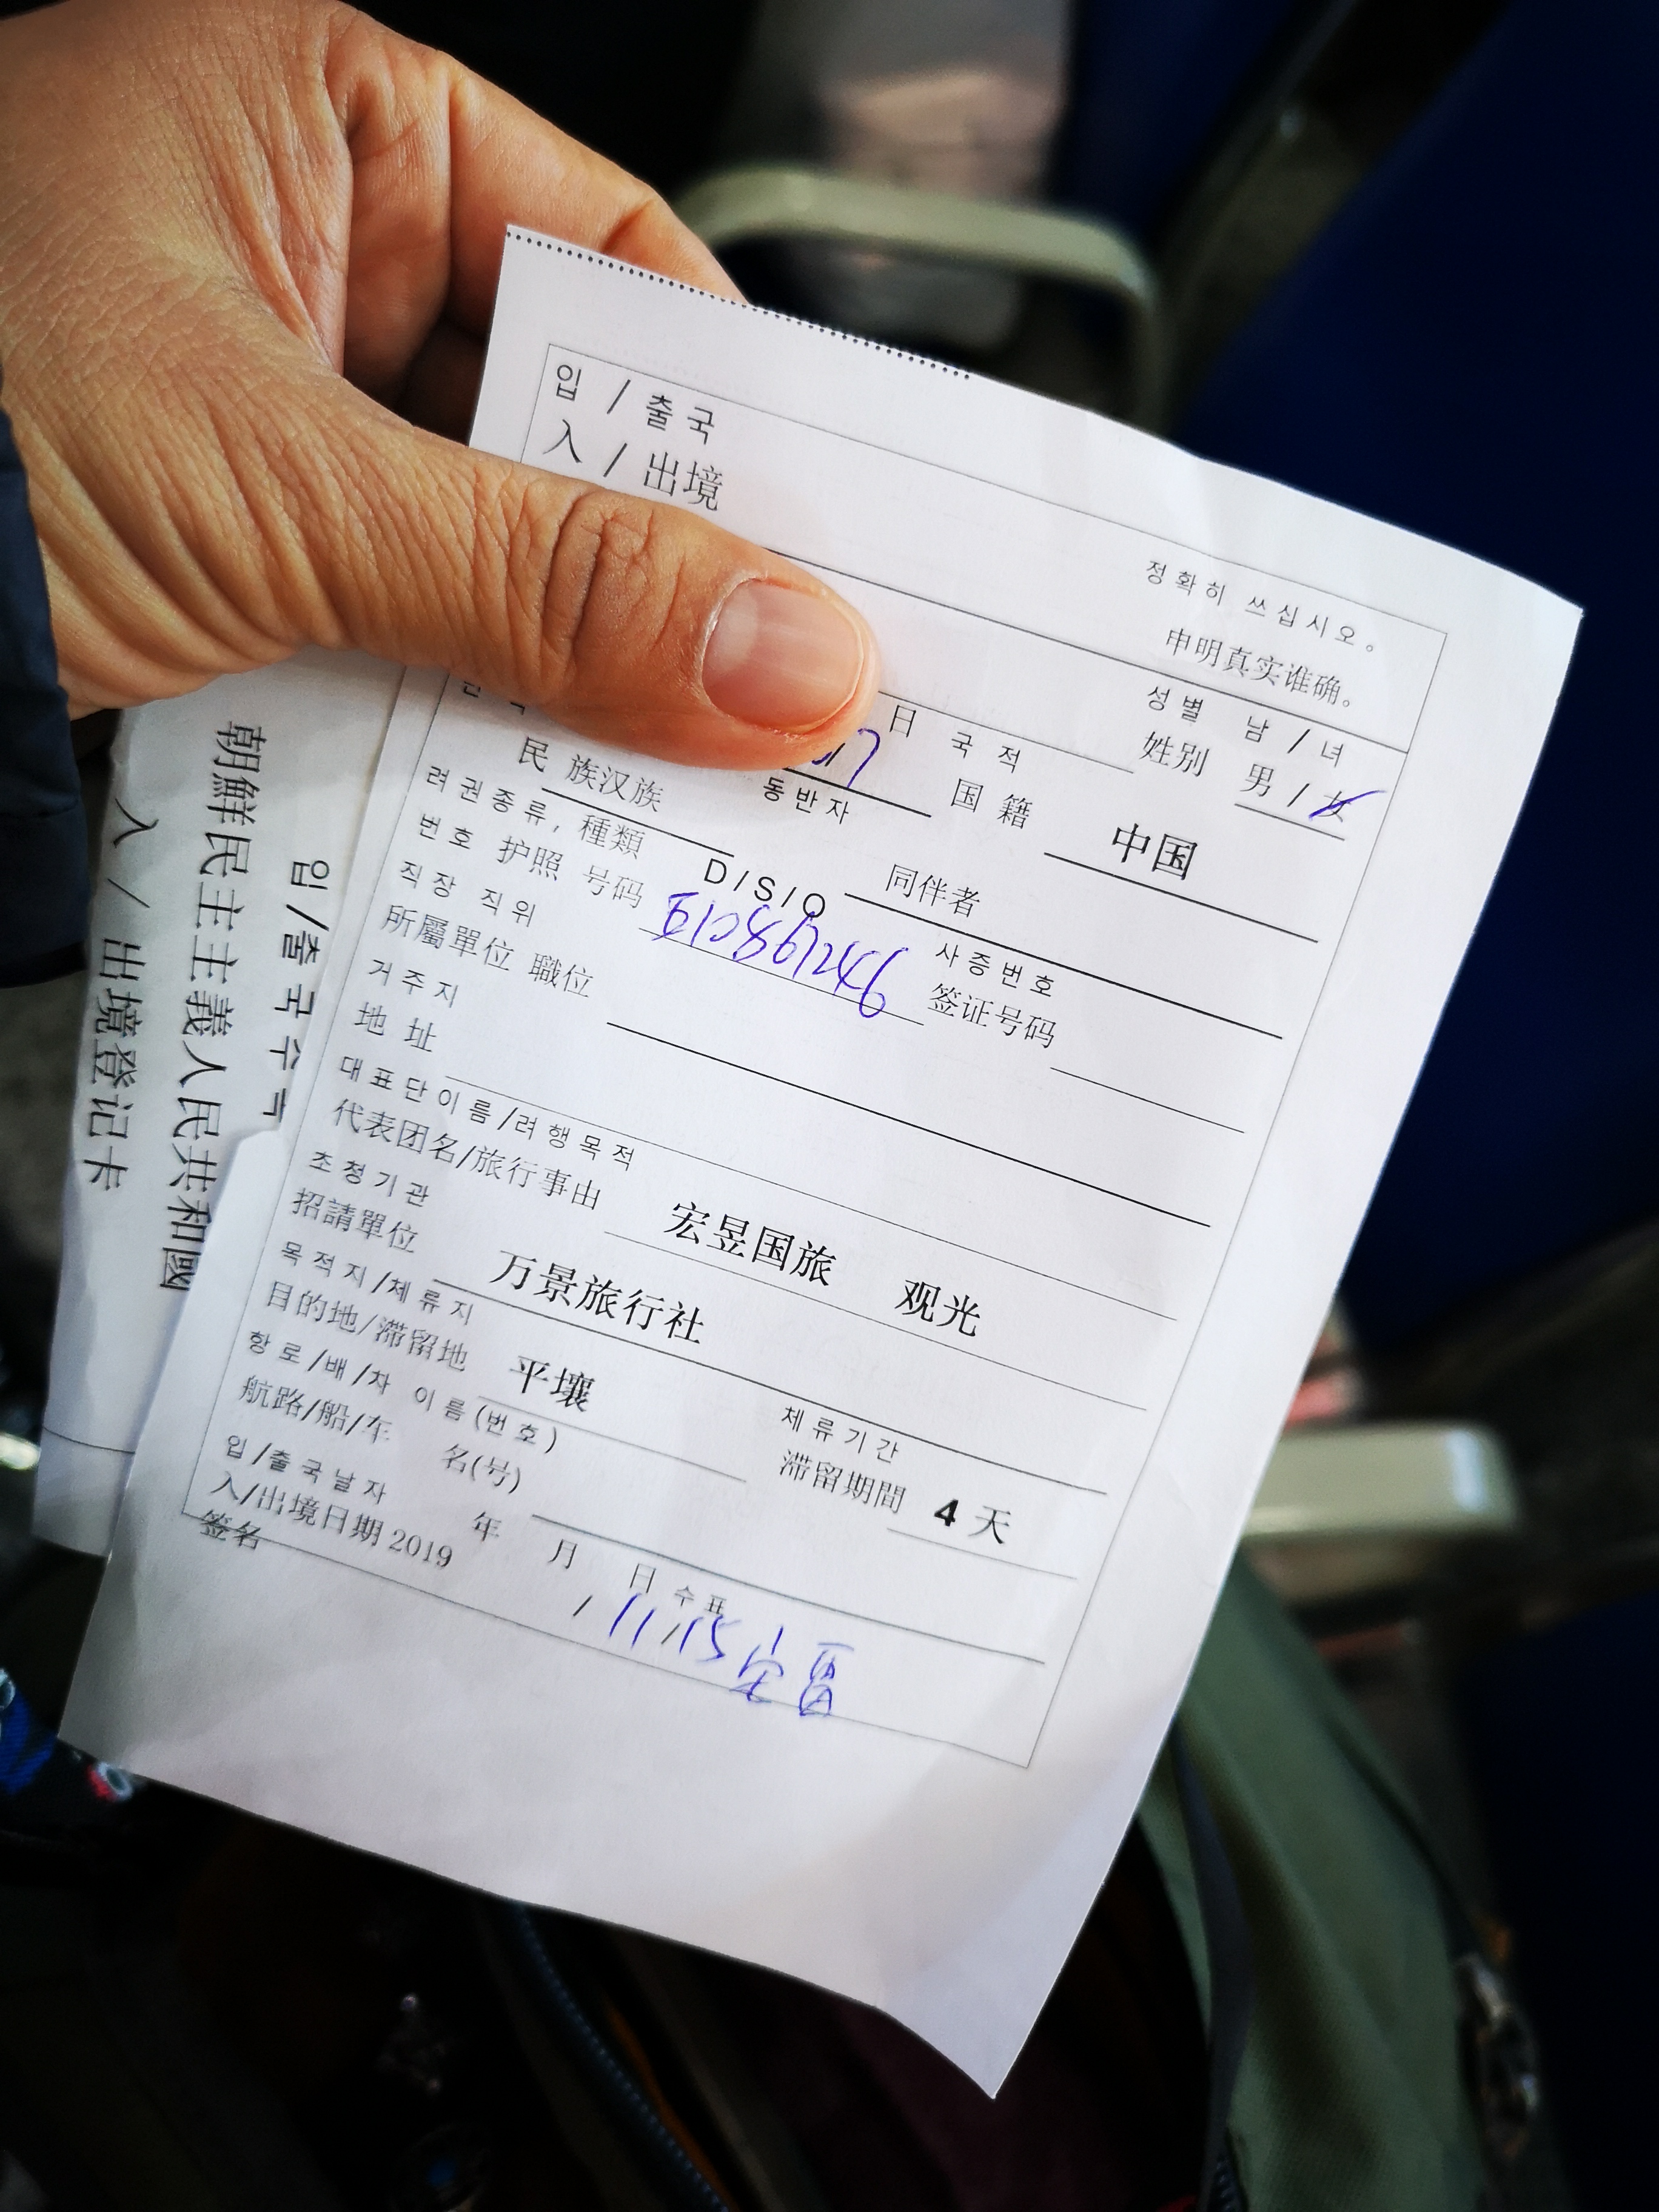 입 / 출국
入 / 出境
정확히 쓰십시오。
申明真实谁确。
성별 남 / 녀
姓别 男 / 女
日 국적
国籍 中国
民 族汉族
동반자
同伴者
려권종류, 種類 D/S/O
번호 护照 号码
사증번호
签证号码
직장 직위
所屬單位 職位
거주지
地 址
대표단이름/려행목적
代表团名/旅行事由 宏昱国旅 观光
초청기관
招請單位 万景旅行社
목적지/체류지
目的地/滞留地 平壤
체류기간
滞留期間 4 天
항로/배/차 이름(번호)
航路/船/车 名(号)
입/출국날자
入/出境日期 2019 年 月 日 수표
签名 / 11/15
입/출국수
朝鮮民主主義人民共和國
入 / 出境登记卡